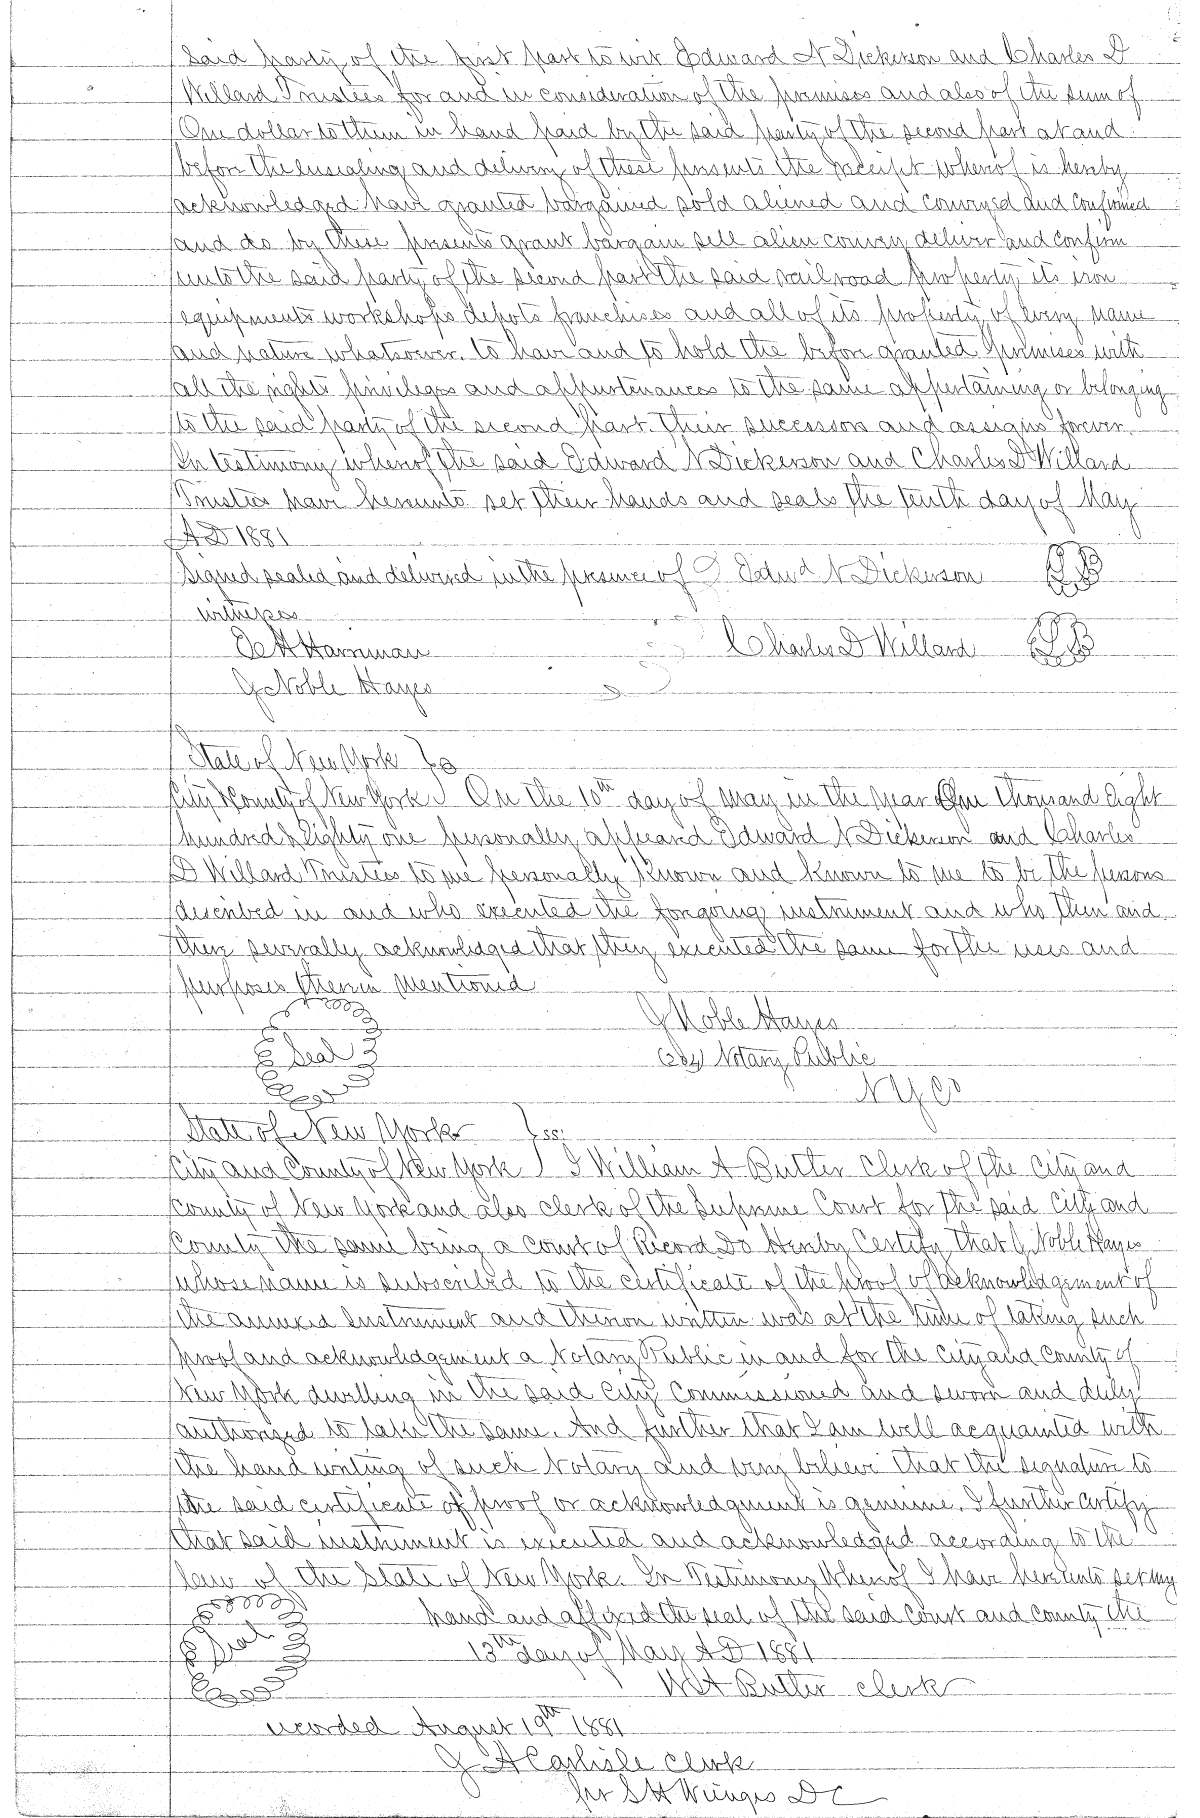 said party of the first part to wit Edward N Dickerson and Charles D
Willard Trustees for and in consideration of the premises and also of the sum of
One dollar to them in hand paid by the said party of the second part at and
before the ensealing and delivery of these presents the receipt whereof is hereby
acknowledged have granted bargained sold aliened and conveyed and confirmed
and do by these presents grant bargain sell alien convey deliver and confirm
unto the said party of the second part the said railroad property its iron
equipments workshops depots franchises and all of its property of every name
and nature whatsoever. to have and to hold the before granted premises with
all the rights privileges and appurtenances to the same appertaining or belonging
to the said party of the second part. their successors and assigns forever.
In testimony whereof the said Edward N Dickerson and Charles D Willard
Trustees have hereunto set their hands and seals the tenth day of May
AD 1881
Signed sealed and delivered in the presence of Edwd N Dickerson
witness
E H Harriman Charles D Willard
J Noble Hayes
State of New York
City & County of New York On the 10th day of May in the year One thousand Eight
hundred & Eighty one personally appeared Edward N Dickerson and Charles
D Willard Trustees to me personally known and known to me to be the persons
described in and who executed the foregoing instrument and who then and
there severally acknowledged that they executed the same for the uses and
purposes therein mentioned
J Noble Hayes
Seal (204) Notary Public
N Y Co
State of New York ss:
City and County of New York I William A Butler Clerk of the City and
County of New York and also clerk of the Supreme Court for the said City and
County the same being a court of Record Do Hereby Certify that J Noble Hayes
whose name is subscribed to the certificate of the proof of acknowledgement of
the annexed Instrument and thereon written was at the time of taking such
proof and acknowledgement a Notary Public in and for the City and County of
New York dwelling in the said City Commissioned and sworn and duly
authorized to take the same. And further that I am well acquainted with
the hand writing of such Notary and very believe that the signature to
the said certificate of proof or acknowledgment is genuine. I further certify
that said instrument is executed and acknowledged according to the
law of the State of New York. In Testimony Whereof I have hereunto set my
hand and affixed the seal of the said Court and County the
Seal 13th day of May AD 1881
W A Butler clerk
recorded August 19th 1881
J A Carlisle clerk
per S H DC